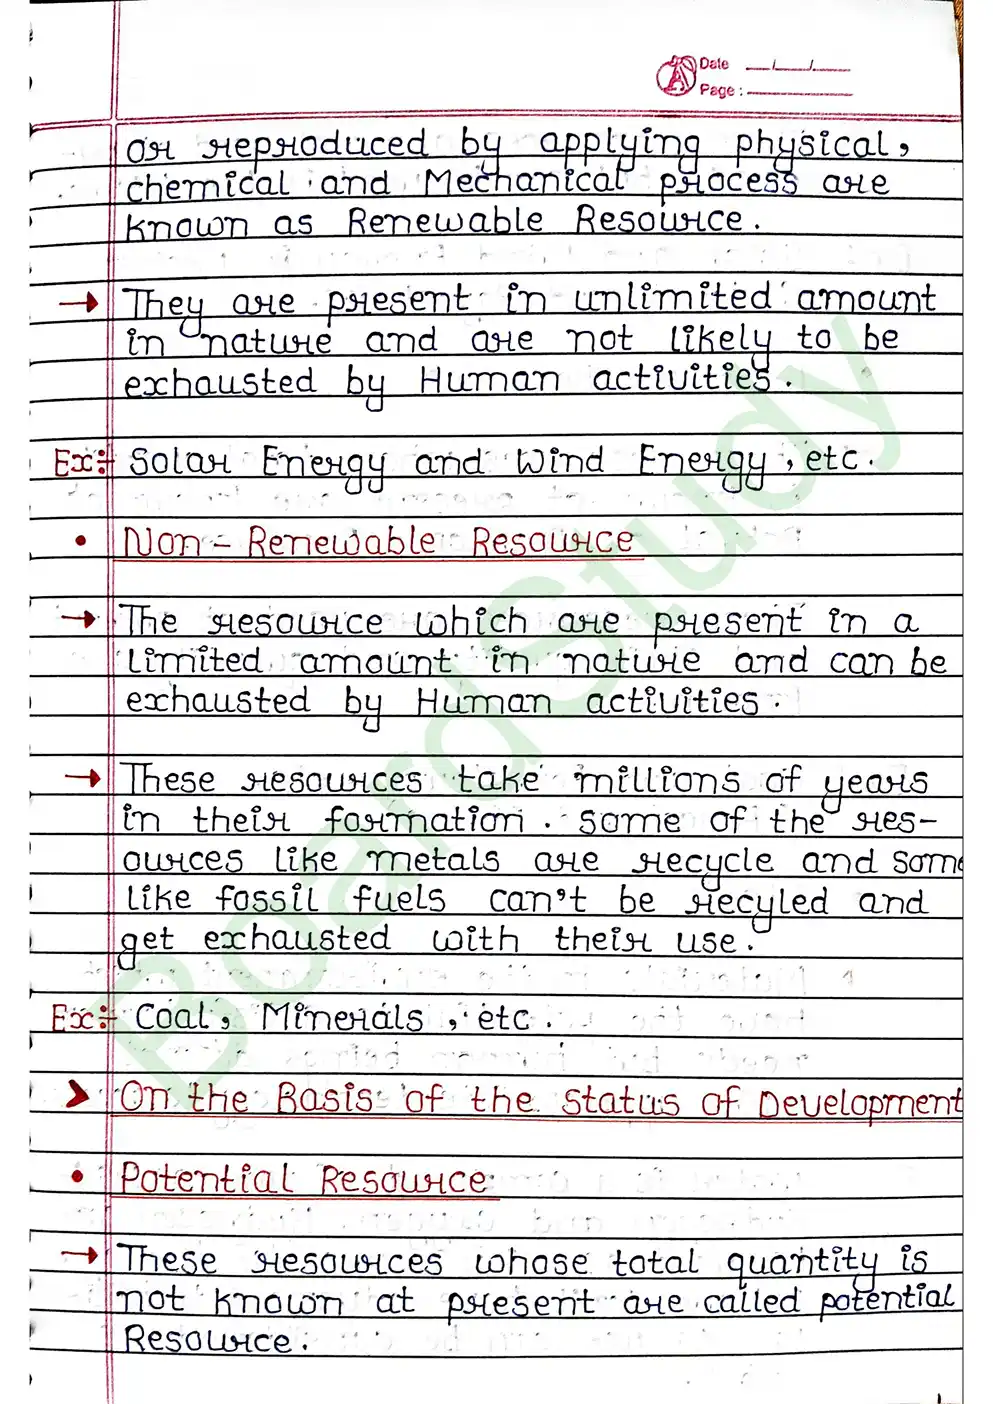 Date __/__/__
Page : ________
or reproduced by applying physical,
chemical and Mechanical process are
known as Renewable Resource.
→ They are present in unlimited amount
in nature and are not likely to be
exhausted by Human activities.
Ex:- Solar Energy and Wind Energy, etc.
• Non-Renewable Resource
→ The resource which are present in a
limited amount in nature and can be
exhausted by Human activities.
→ These resources take millions of years
in their formation. Some of the res-
ources like metals are recycle and some
like fossil fuels can't be recyled and
get exhausted with their use.
Ex:- Coal, Minerals, etc.
➤ On the Basis of the Status of Development
• Potential Resource
→ These resources whose total quantity is
not known at present are called potential
Resource.
BoardStudy